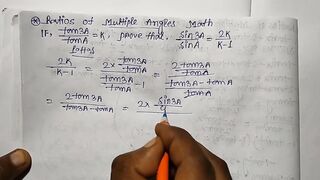 * Ratios of Multiple Angles Math
IF, tan3A/tanA = K, prove that, sin3A/sinA = 2K/K-1
2K/K-1 = 2× tan3A/tanA / tan3A/tanA -1 = 2tan3A/tanA / tan3A-tanA/tanA
= 2tan3A/tan3A-tanA = 2× sin3A